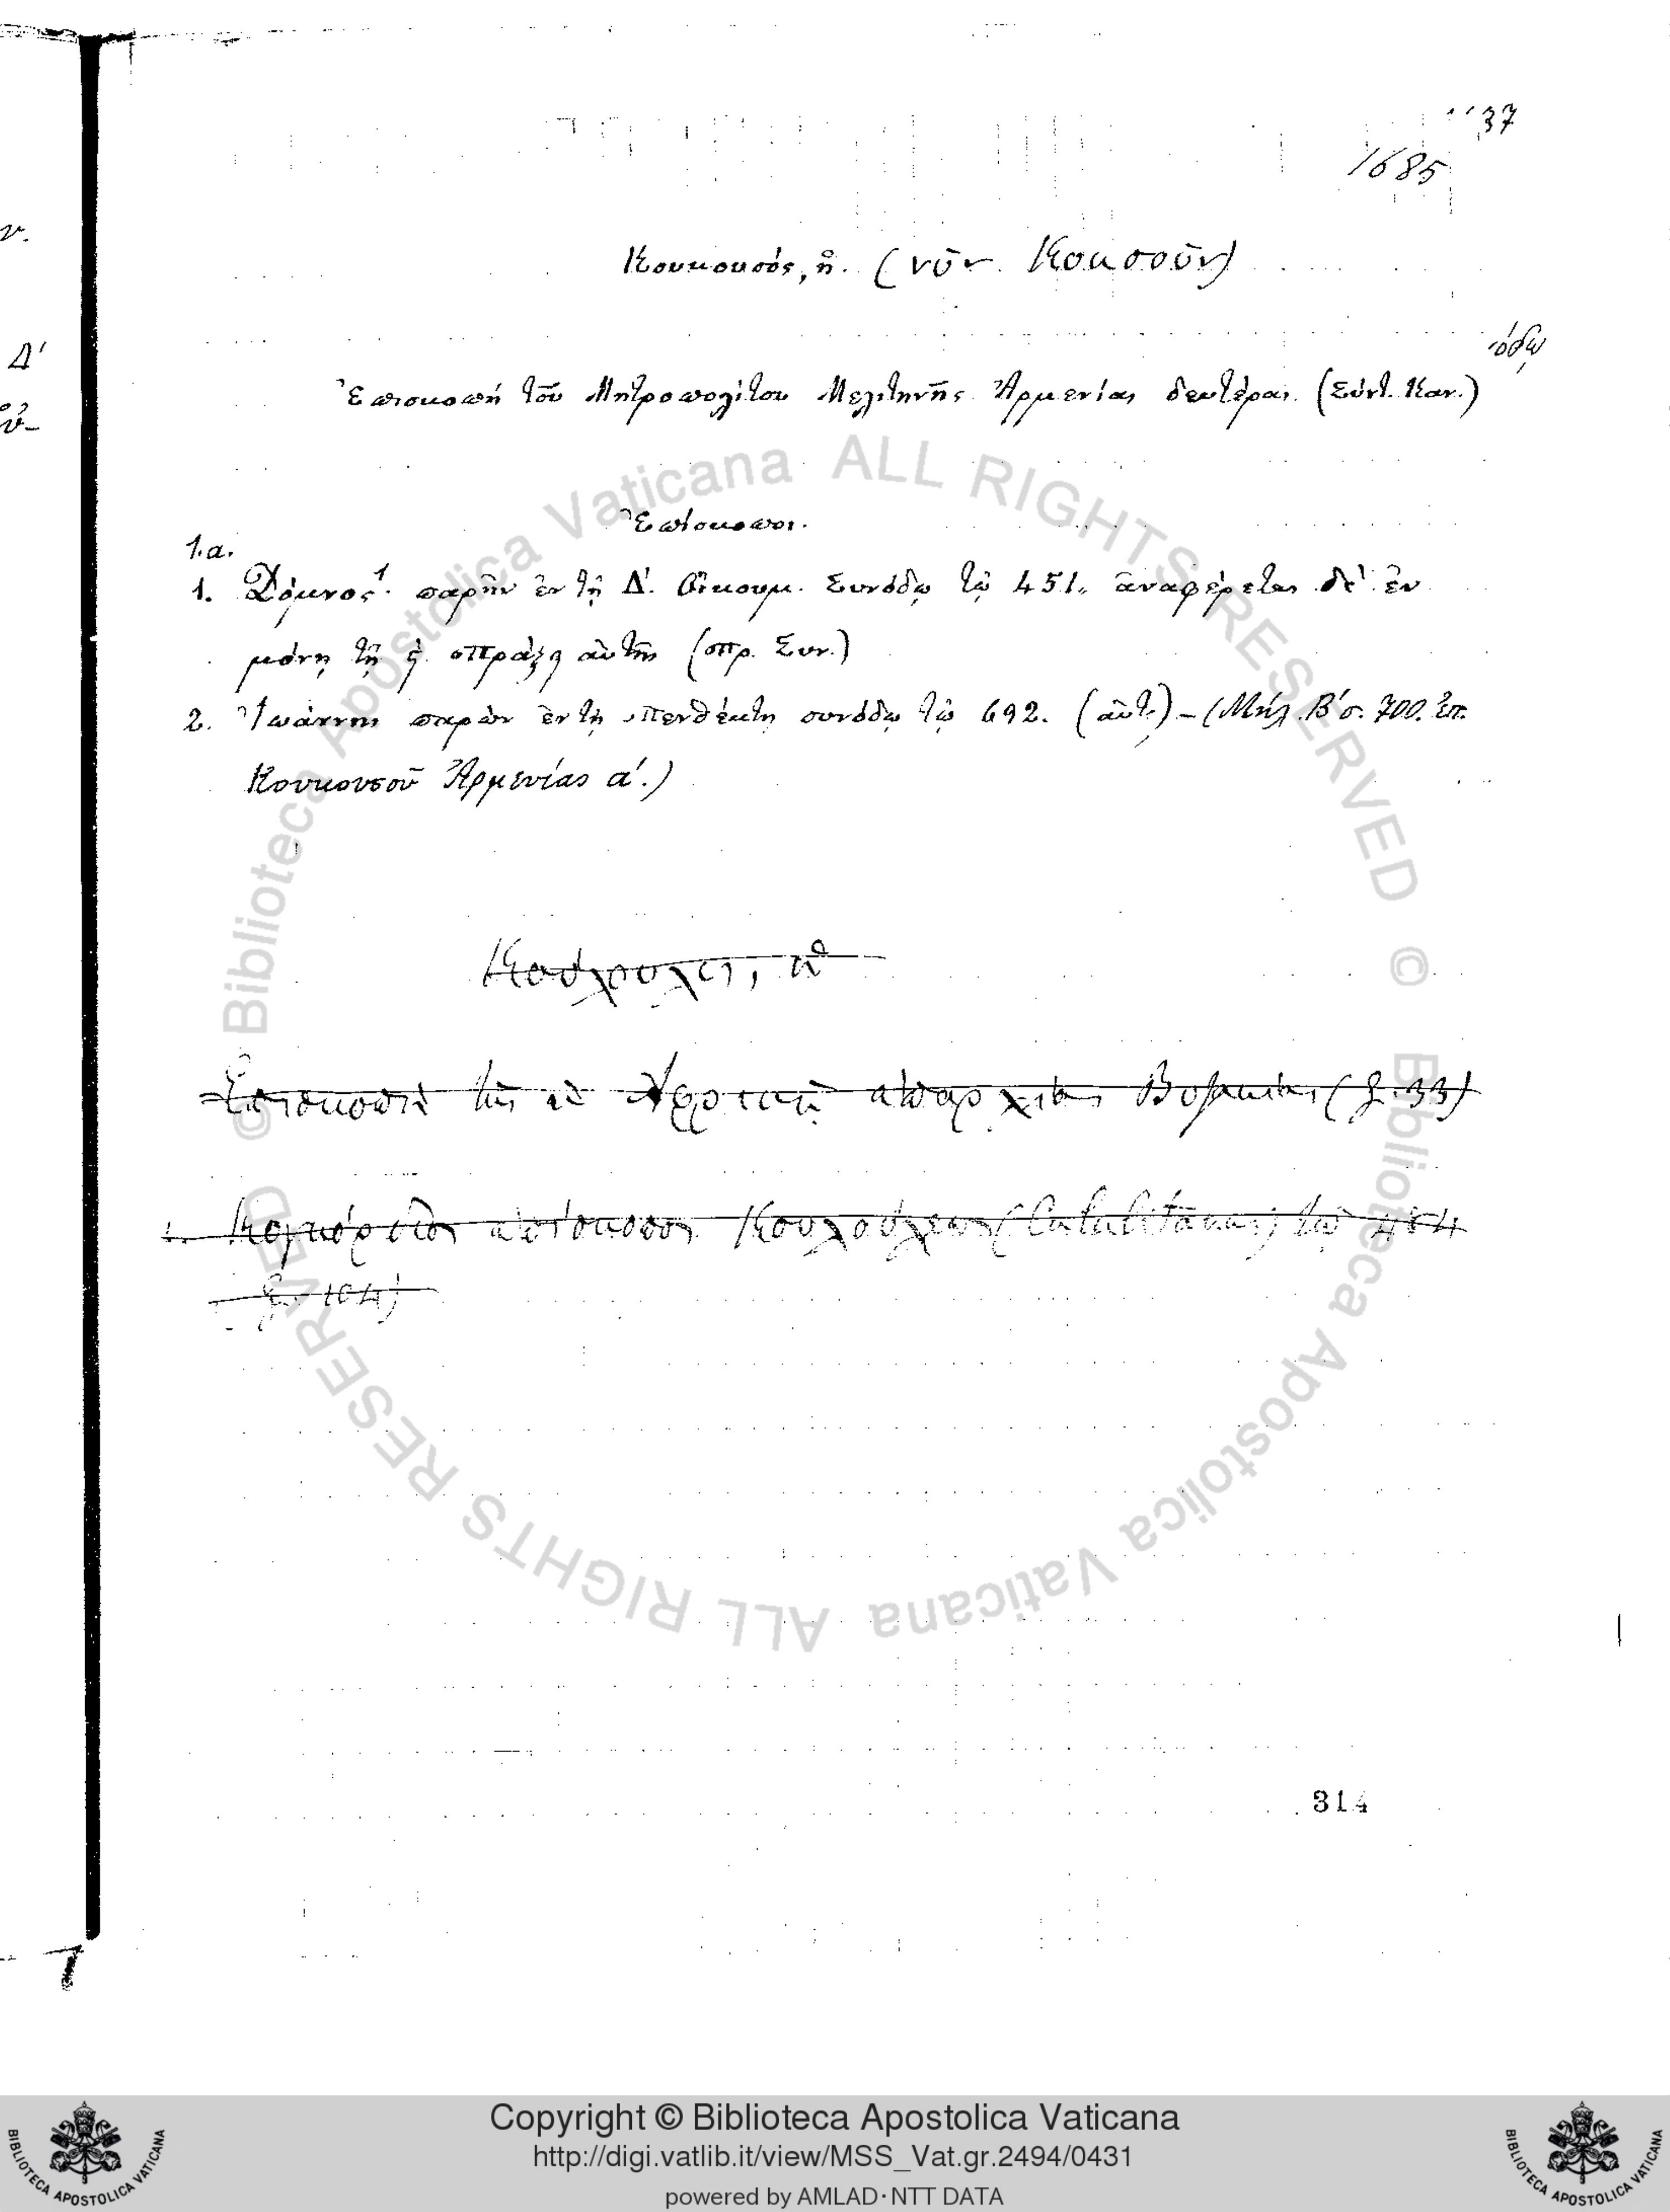 37
1685
Κουκουσός, ἡ. (νῦν Κοκσοῦν)
Ἐπισκοπή τοῦ Μητροπολίτου Μελιτηνῆς Ἀρμενίας δευτέρας. (Σύντ. Καν.)
Ἐπίσκοποι.
1.α.
1. Δόμνος 1. παρῆν ἐν τῇ Δ΄. Οἰκουμ. Συνόδῳ τῷ 451. ἀναφέρεται δὲ ἐν
μόνῃ τῇ πράξῃ αὐτῆς (πρ. Συν.)
2. Ἰωάννης παρὼν ἐν τῇ Πενθέκτῃ συνόδῳ τῷ 692. (αὐτ.) – (Μήλ. Β΄ σ. 700. ἐπ.
Κουκουσοῦ Ἀρμενίας α΄.)
ἡ
Ἐπισκοπὴ τῆς ἐν Ἀφρικῇ ἐπαρχίας (33)
1. ἐπίσκοπος τῷ 484
104)
314
Δ΄
© Biblioteca Apostolica Vaticana ALL RIGHTS RESERVED
© Biblioteca Apostolica Vaticana ALL RIGHTS RESERVED
Copyright © Biblioteca Apostolica Vaticana
http://digi.vatlib.it/view/MSS_Vat.gr.2494/0431
powered by AMLAD·NTT DATA
BIBLIOTECA APOSTOLICA VATICANA
BIBLIOTECA APOSTOLICA VATICANA